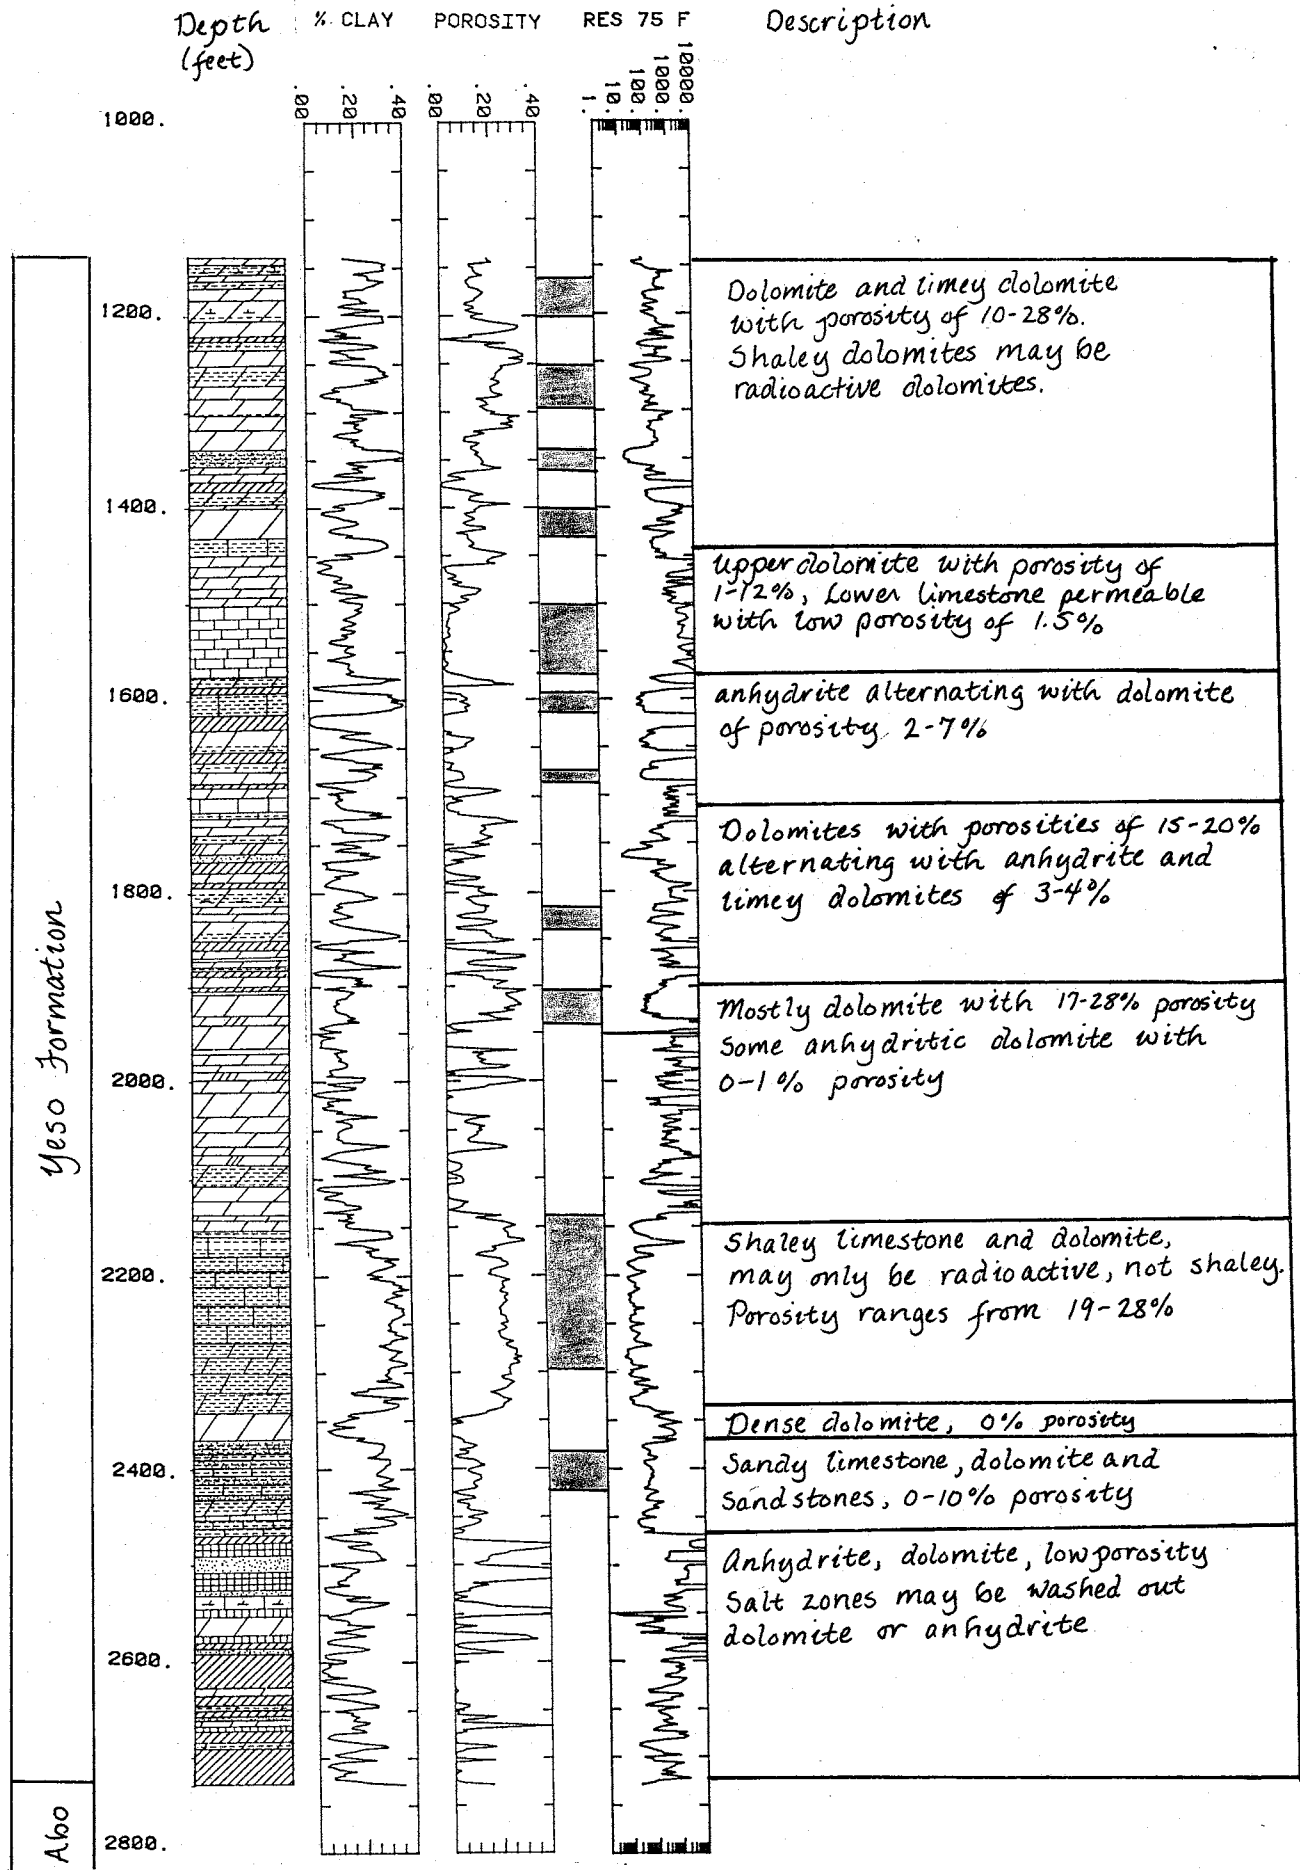 Depth
(feet)
% CLAY
POROSITY
RES 75 F
Description
.00
.20
.40
.00
.20
.40
1.
10.
100.
1000.
10000.
1000.
1200.
1400.
1600.
1800.
2000.
2200.
2400.
2600.
2800.
Yeso Formation
Abo
Dolomite and limey dolomite
with porosity of 10-28%.
Shaley dolomites may be
radioactive dolomites.
Upper dolomite with porosity of
1-12%, Lower limestone permeable
with low porosity of 1.5%
anhydrite alternating with dolomite
of porosity 2-7%
Dolomites with porosities of 15-20%
alternating with anhydrite and
limey dolomites of 3-4%
Mostly dolomite with 17-28% porosity
Some anhydritic dolomite with
0-1% porosity
Shaley limestone and dolomite,
may only be radioactive, not shaley.
Porosity ranges from 19-28%
Dense dolomite, 0% porosity
Sandy limestone, dolomite and
Sandstones, 0-10% porosity
Anhydrite, dolomite, low porosity
Salt zones may be washed out
dolomite or anhydrite